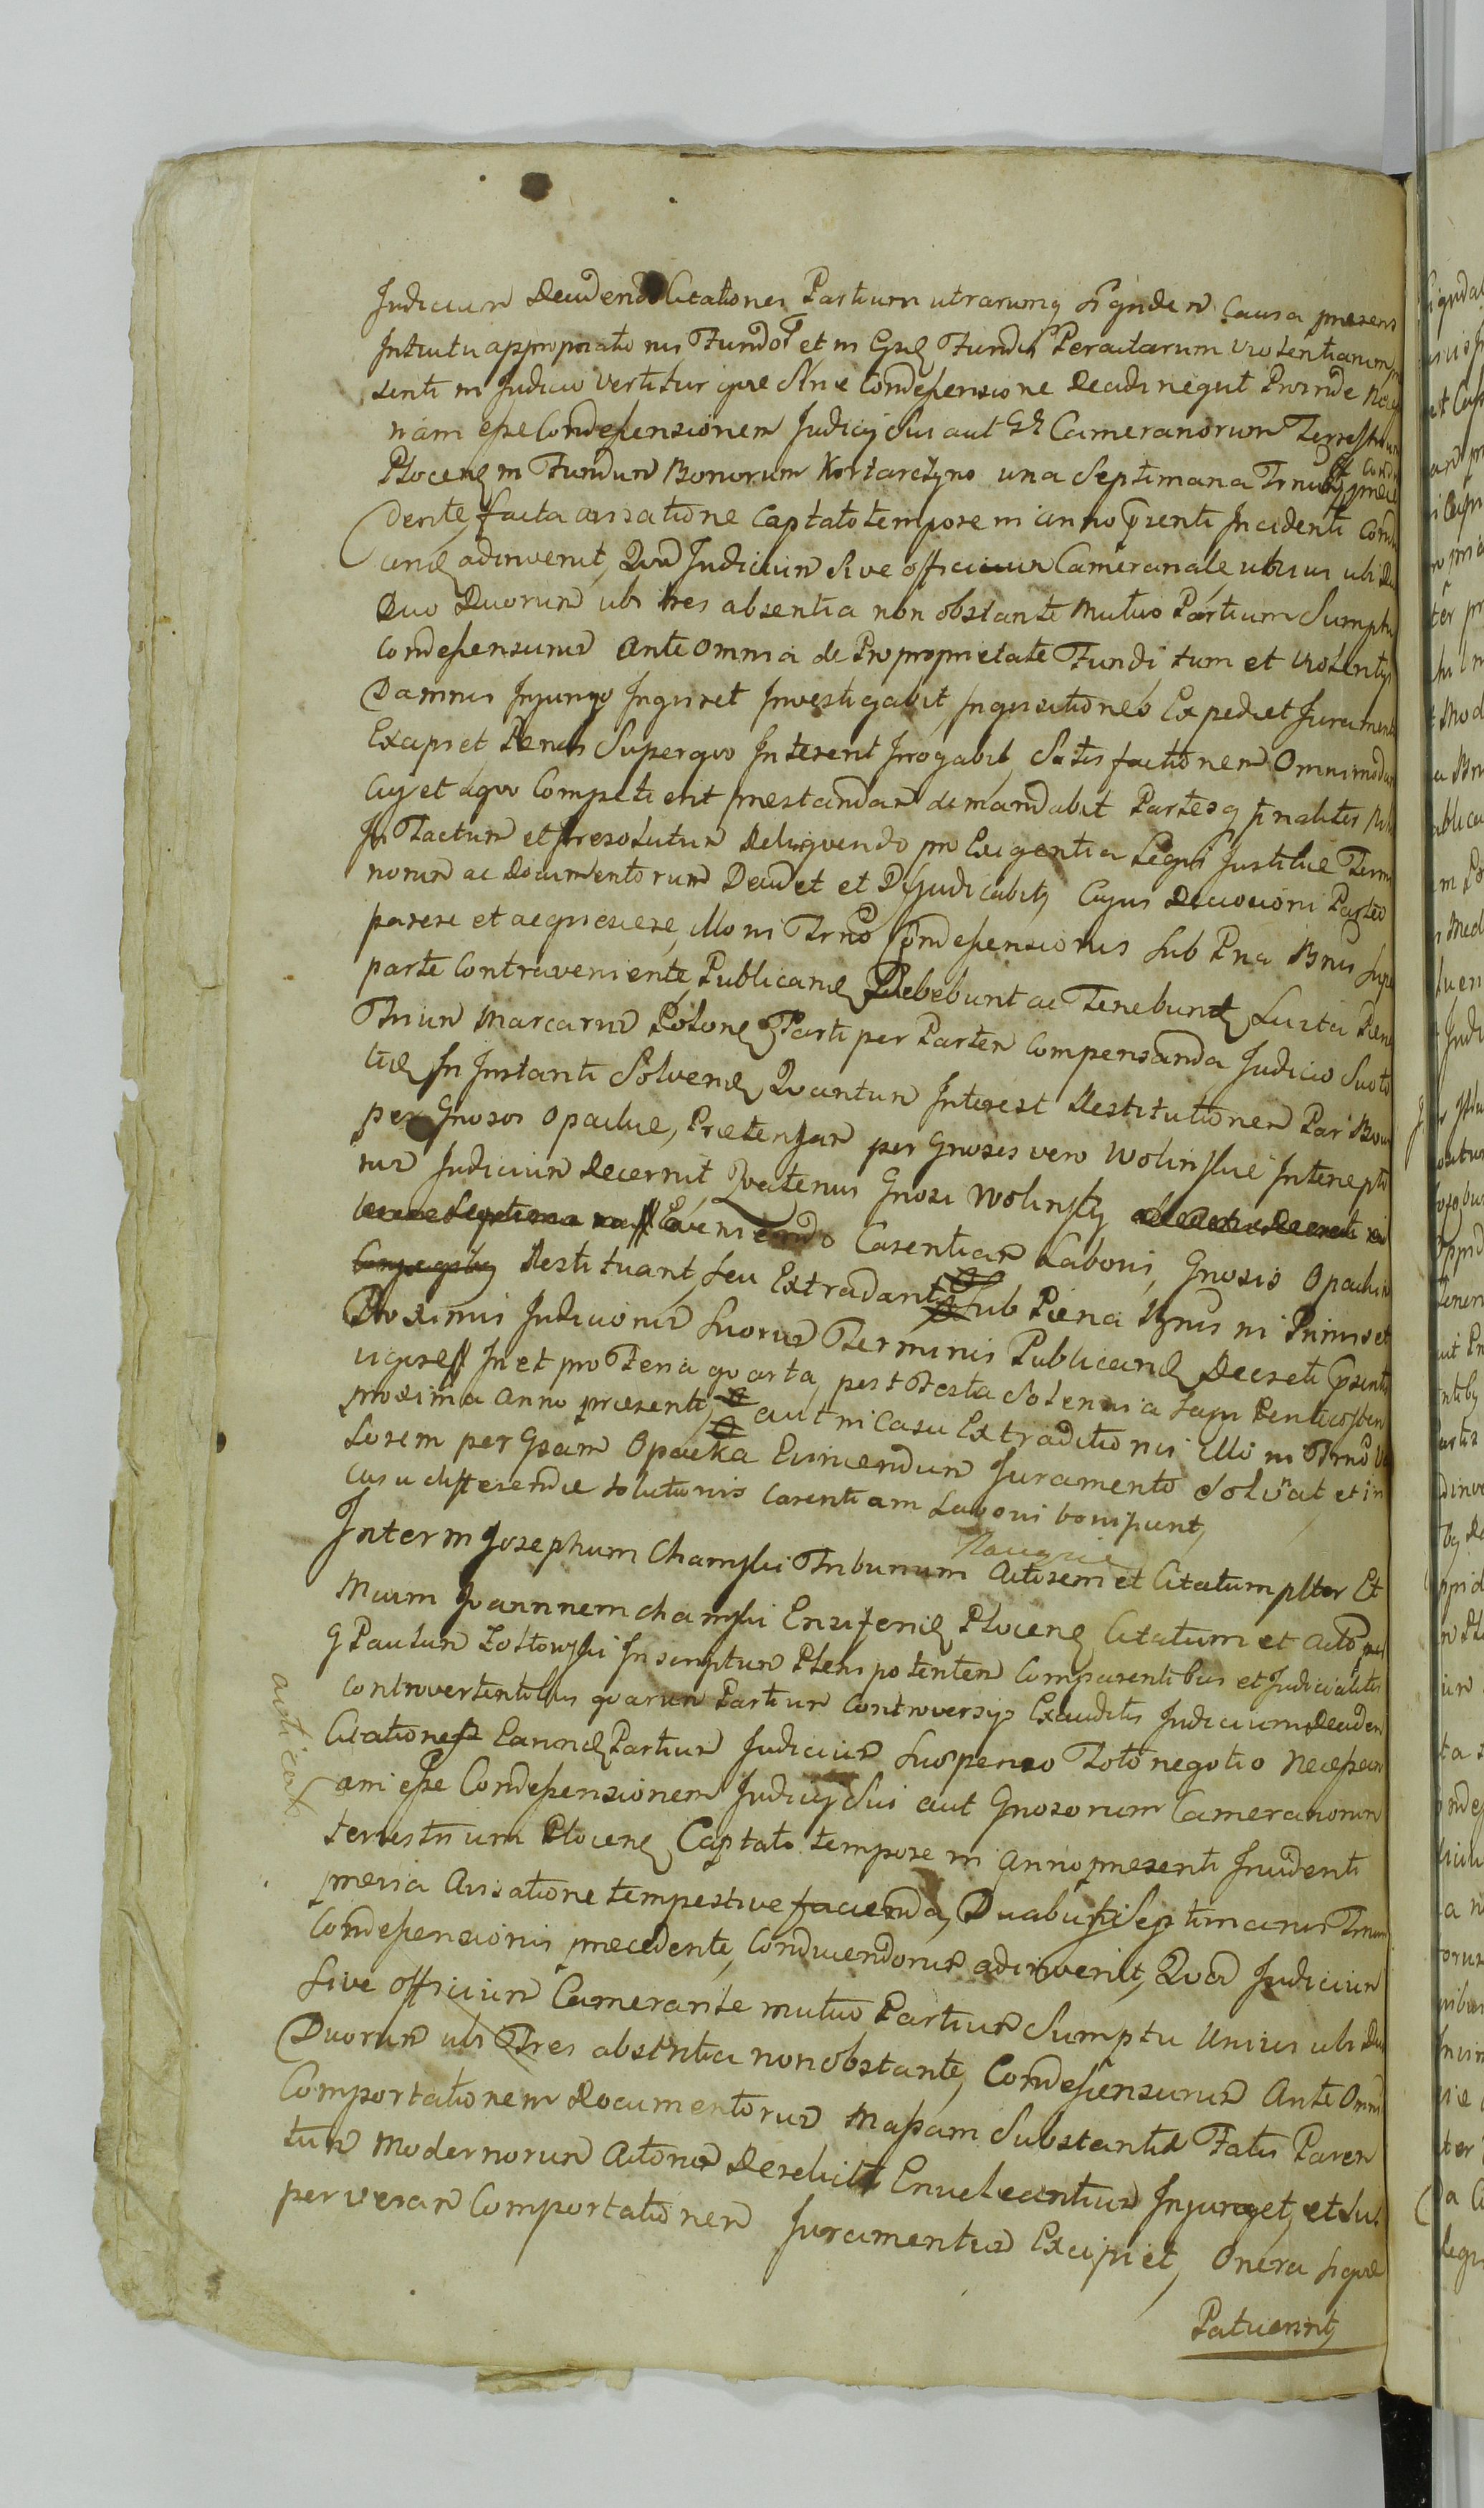 Judicium Decidendo Citationes Partium utrarumq siquidem Causa praesens
Intuitu appropriationis Fundor et in Gsq Fundis Peractarum Violentiarum
senti in Judicio vertitur quae sine Condescensione Decidi nequit Proinde
riam esse Condescensionem Judicij Sui aut Gr Cameranorum Terrestrium
Plocen in Fundum Bonorum Kostarczyno una Septimana Trnum praece
dente, facta avisatione captato tempore in anno Psenti Incidenti
cend adinvenit, Qvod Judicium Sive officium Cameranale unius ubi
Duo Duorum ubi tres absentia non obstante mutuo Partium Sumptu
Condescensurum ante omnia de Proproprietate Fundi tum et Violentys
Damnis Injungo Inquiret Investigabit, Inquisitiones Expediet Juramenta
Excipiet, Penas Superquo Interent Irrogabit, Satisfactionem Omnimodam
Cuj et aquo Competierit praestandam demandabit Partesq finaliter
In Factum et Irresolutum Deliquendo pro Exigentia Legis Justitiae
norum ac Documentorum Decidet et Dijudicabit, Cujus Decisioni Partes
parere et acquiescere, illo in Trno Condescensionis sub Pna Bnis
parte Contraveniente, Publicand Debebunt ac Tenebunt, Luita
Trium Marcarum Polon Parti per Partem Compensanda Judicio
In Instanti Solvend, Qvantum Interest Restitutionem Par
per Gnosos Opackie, Praetensam per Gnosos vero Wolinskie
Judicium Decernit, Qvatenus Gnosi Wolinsky
Eveniendo Carentiam Laboris, Gnosis Opackim
Restituant, seu Extradant Sub Poena Bnis in Primis et
Proximis Judiciorum Suorum Terminis Publicand Decreti Psentis
In et pro Feria quarta, post Festa Solennia Sap Penticosten
proxima anno praesenti, aut in Casu Extraditionis illo in Trno
lorem per Gsam Opacka Evincendum Juramento Solvat et in
casu differendae solutionis Carentiam Laboris bonifient,
Inter m Josephum Chamski Tribunum Raciqzie Actorem et Citatum plter Et
Mcum Joannnem Chamski Ensiferid Plocen Citatum et
G Paulum Zoltowski Inscriptum Plenipotentem Comparentibus et Judicialiter
Controvertentibus quarum Partium Controversijs Exauditis Judicium Deciden
Citationes Earund Partium Judicium Suspenso Toto negotio necessari
am esse Condescensionem Judicij Sui aut Gnosorum Cameranorum
terrestrium Plocen, Captato tempore in Anno praesenti Incidenti
previa Avisatione tempestive facienda, Duabus Septimanis Trnum
Condescensionis praecedente, Conducendorum adinvenit, Qvod Judicium
Sive Officium Camerante mutuo Partium Sumptu Unius ubi Duo
Duorum ubi Tres absentia non obstante, Condescensurum Ante Omnia
Comportationem Documentorum Massam Substantia Fatis Paren
tum modernorum Actorum Derelict Enucleantium Injunget, et su
per veram Comportationem Juramentum Excipiet, Onera siquae
Patuerint,